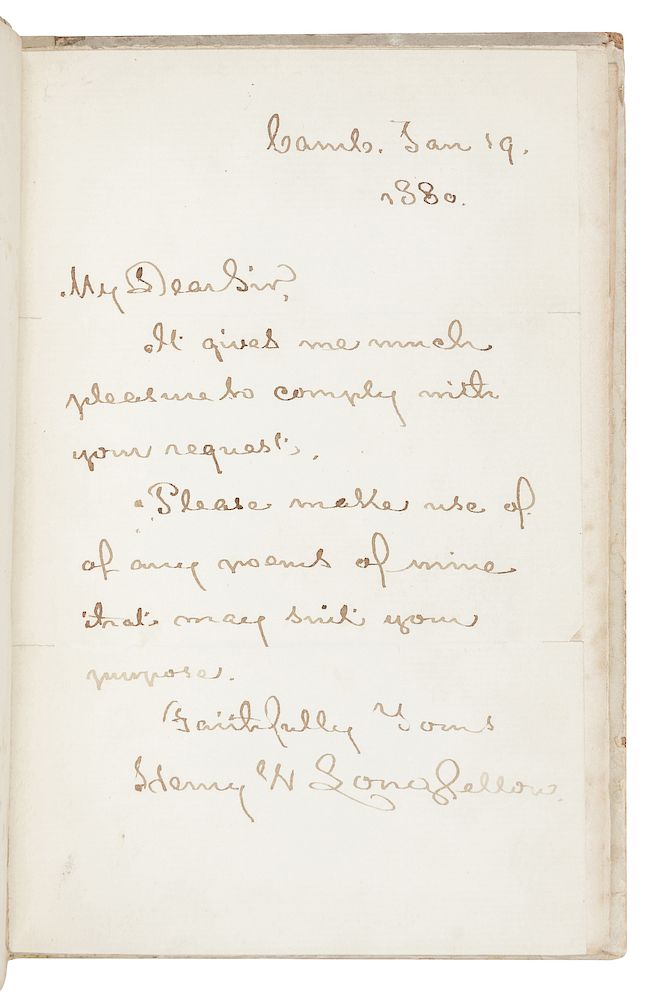 Camb. Jan 19.
1880.
My Dear Sir,
It gives me much
pleasure to comply with
your request.
Please make use of
of any poems of mine
that may suit your
purpose.
Faithfully Yours
Henry W Longfellow.